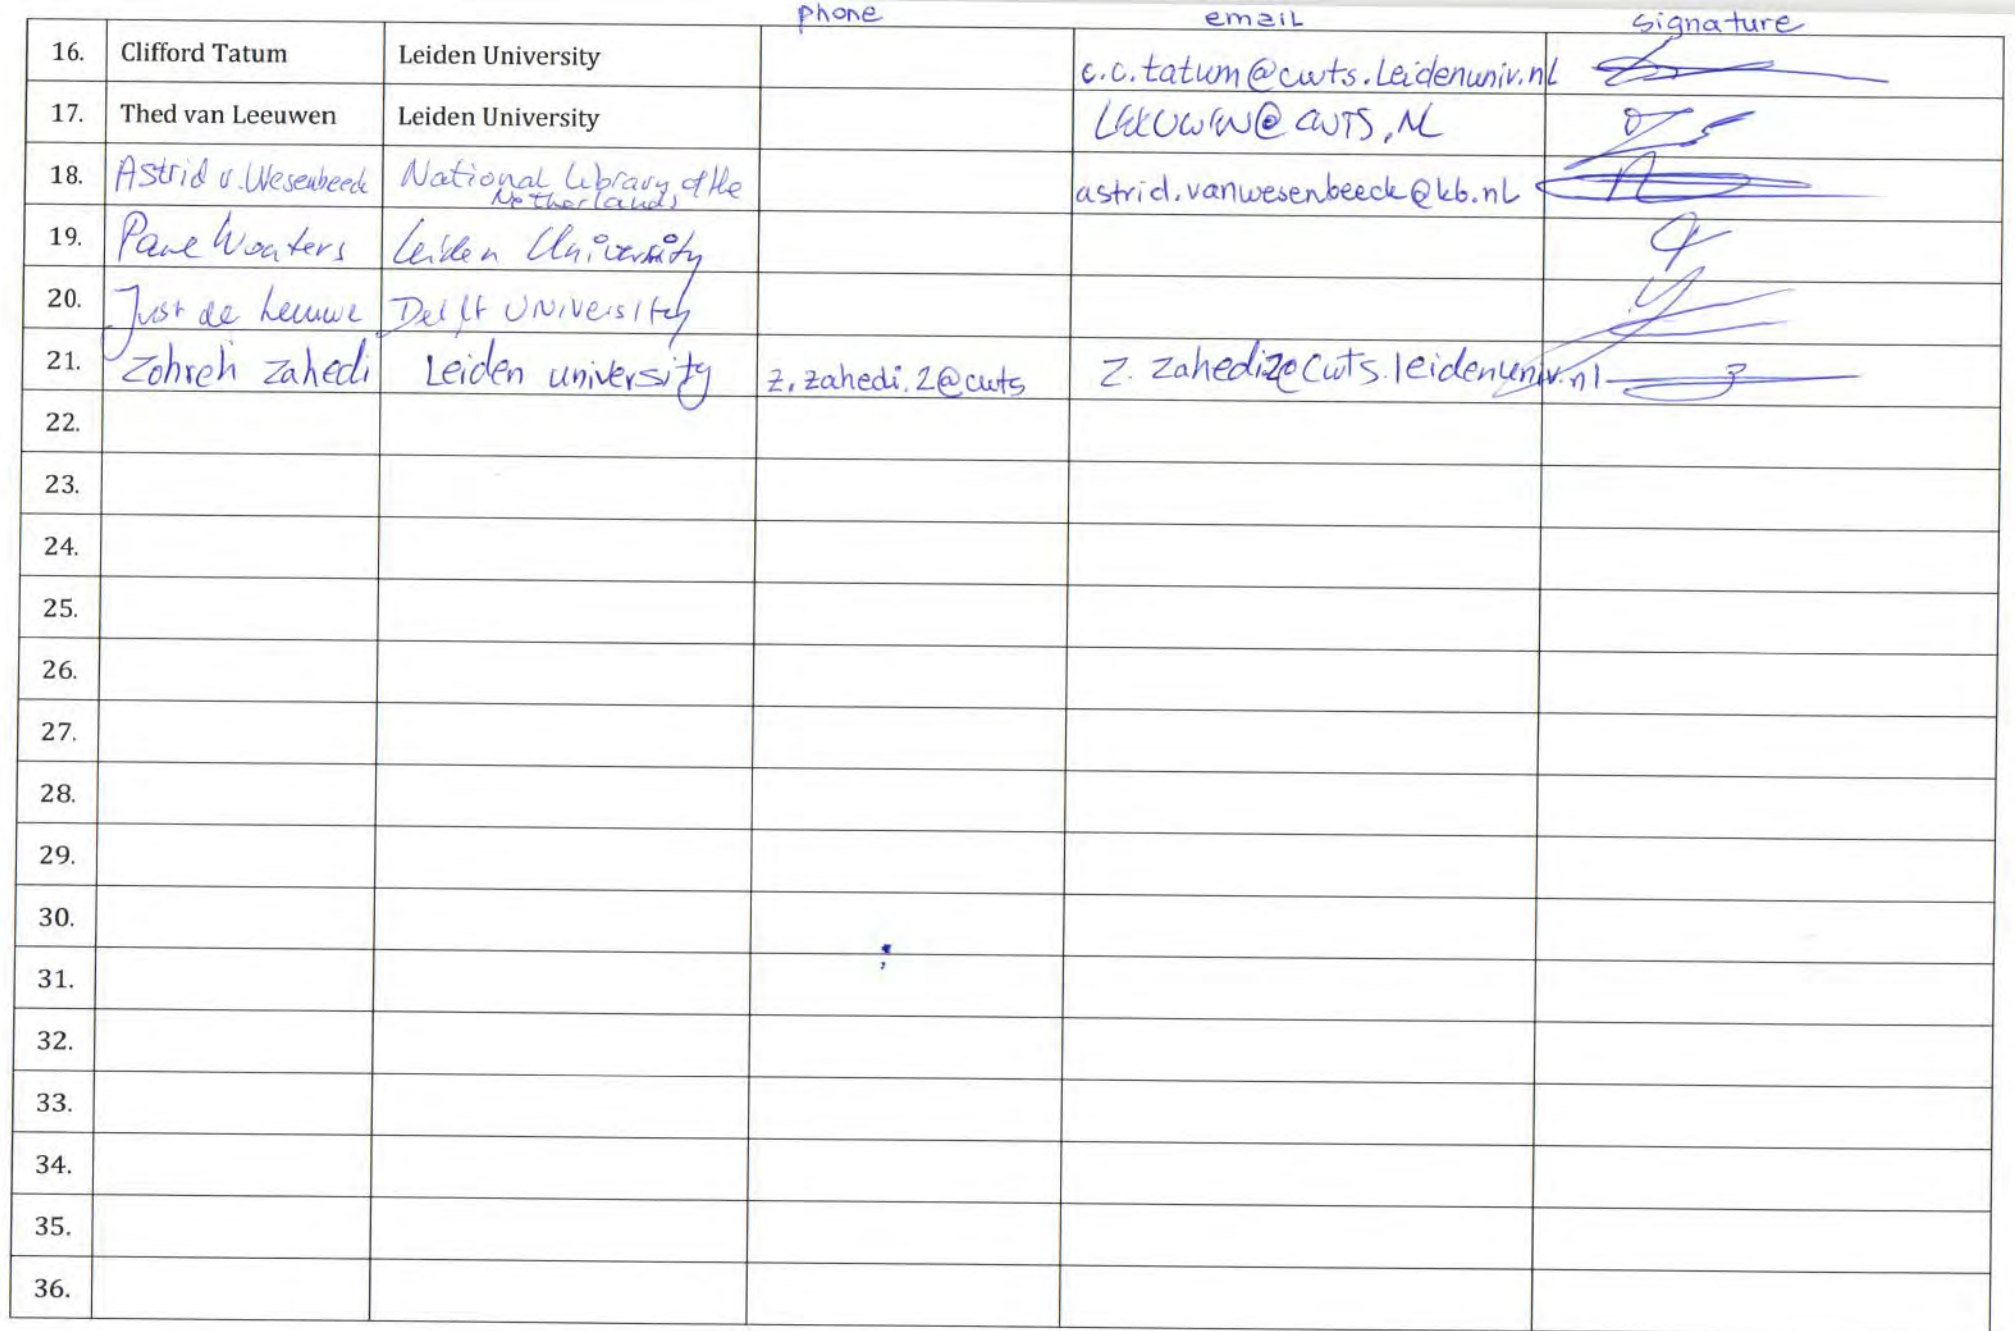 phone email signature
16. Clifford Tatum Leiden University c.c.tatum@cwts.leidenuniv.nl
17. Thed van Leeuwen Leiden University LEEUWEN@CWTS.NL
18. Astrid v. Wesenbeeck National Library of the
Netherlands astrid.vanwesenbeeck@kb.nl
19. Paul Wouters Leiden University
20. Just de Leeuwe Delft University
21. Zohreh Zahedi Leiden university z.zahedi.2@cwts z.zahedi2@cwts.leidenuniv.nl
22.
23.
24.
25.
26.
27.
28.
29.
30.
31.
32.
33.
34.
35.
36.